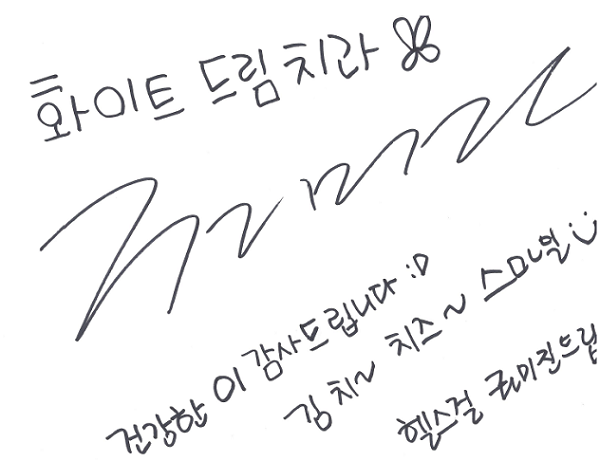 화이트 드림 치과
건강한 이 감사드립니다 :D
김치~ 치즈~ 스마일
헬스걸 권미진 드림